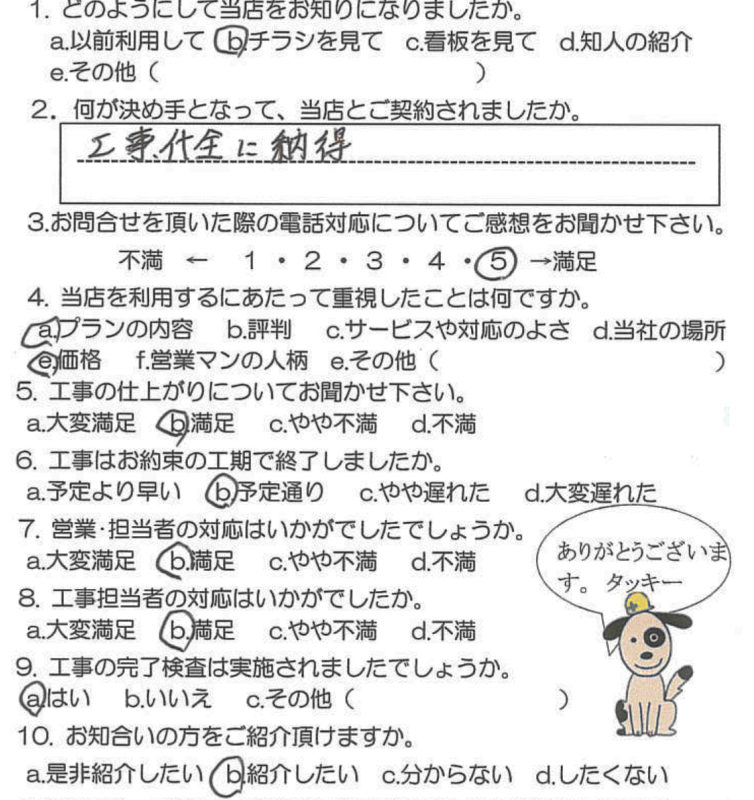 1. どのようにして当店をお知りになりましたか。
a.以前利用して b.チラシを見て c.看板を見て d.知人の紹介
e.その他（ ）
2. 何が決め手となって、当店とご契約されましたか。
工事代金に納得
3.お問合せを頂いた際の電話対応についてご感想をお聞かせ下さい。
不満 ← 1 ・ 2 ・ 3 ・ 4 ・ 5 →満足
4. 当店を利用するにあたって重視したことは何ですか。
a.プランの内容 b.評判 c.サービスや対応のよさ d.当社の場所
e.価格 f.営業マンの人柄 e.その他（ ）
5. 工事の仕上がりについてお聞かせ下さい。
a.大変満足 b.満足 c.やや不満 d.不満
6. 工事はお約束の工期で終了しましたか。
a.予定より早い b.予定通り c.やや遅れた d.大変遅れた
7. 営業・担当者の対応はいかがでしたでしょうか。
a.大変満足 b.満足 c.やや不満 d.不満
ありがとうございま
す。 タッキー
8. 工事担当者の対応はいかがでしたか。
a.大変満足 b.満足 c.やや不満 d.不満
9. 工事の完了検査は実施されましたでしょうか。
a.はい b.いいえ c.その他（ ）
10. お知合いの方をご紹介頂けますか。
a.是非紹介したい b.紹介したい c.分からない d.したくない